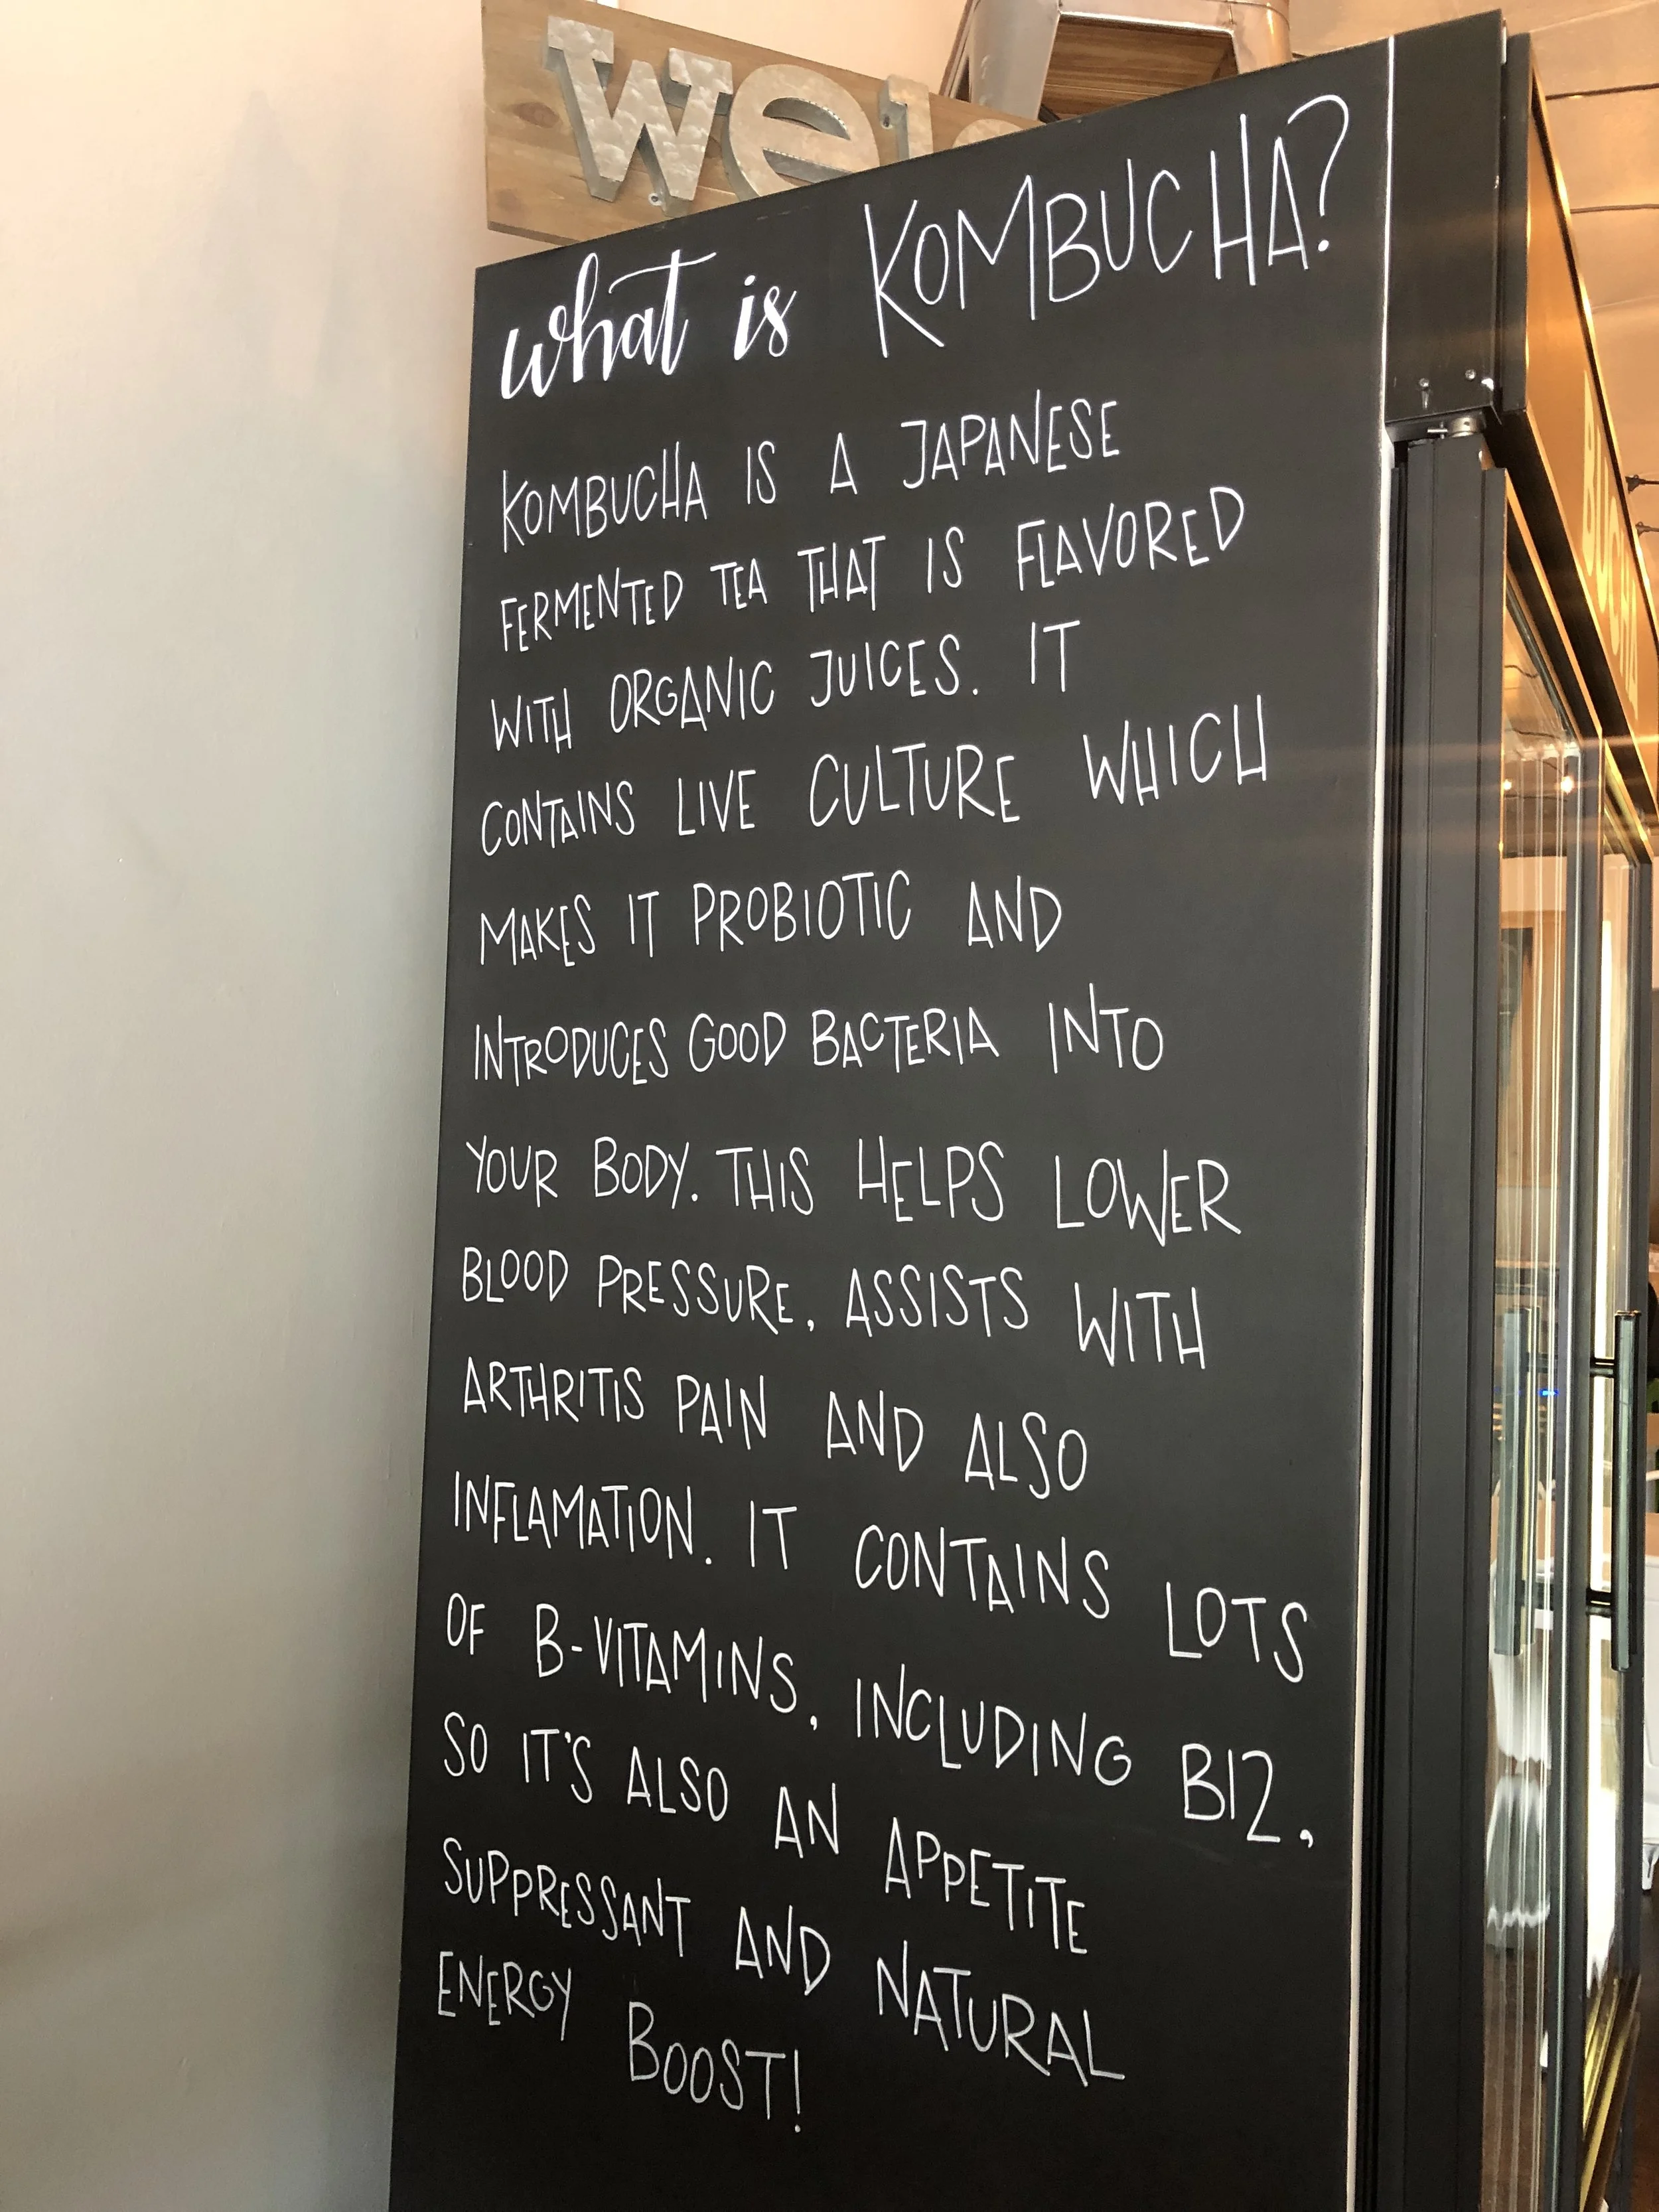 what is KOMBUCHA?
KOMBUCHA IS A JAPANESE
FERMENTED TEA THAT IS FLAVORED
WITH ORGANIC JUICES. IT
CONTAINS LIVE CULTURE WHICH
MAKES IT PROBIOTIC AND
INTRODUCES GOOD BACTERIA INTO
YOUR BODY. THIS HELPS LOWER
BLOOD PRESSURE, ASSISTS WITH
ARTHRITIS PAIN AND ALSO
INFLAMATION. IT CONTAINS LOTS
OF B-VITAMINS, INCLUDING B12,
SO IT'S ALSO AN APPETITE
SUPPRESSANT AND NATURAL
ENERGY BOOST!